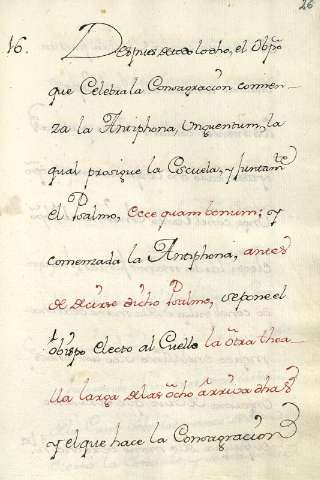 26
16. Despues de todo lo dho, el Obpo
que Celebra la Consagracion comen-
za la Antiphona, Unguentum, la
qual prosigue la Escuela, y juntamte
el Psalmo, Ecce quam bonum; y
comenzada la Antiphona, antes
de decirse dicho Psalmo, se pone el
obispo electo al Cuello la otra thoa-
lla larga de las ocho arriva dhas
y el que hace la Consagracion